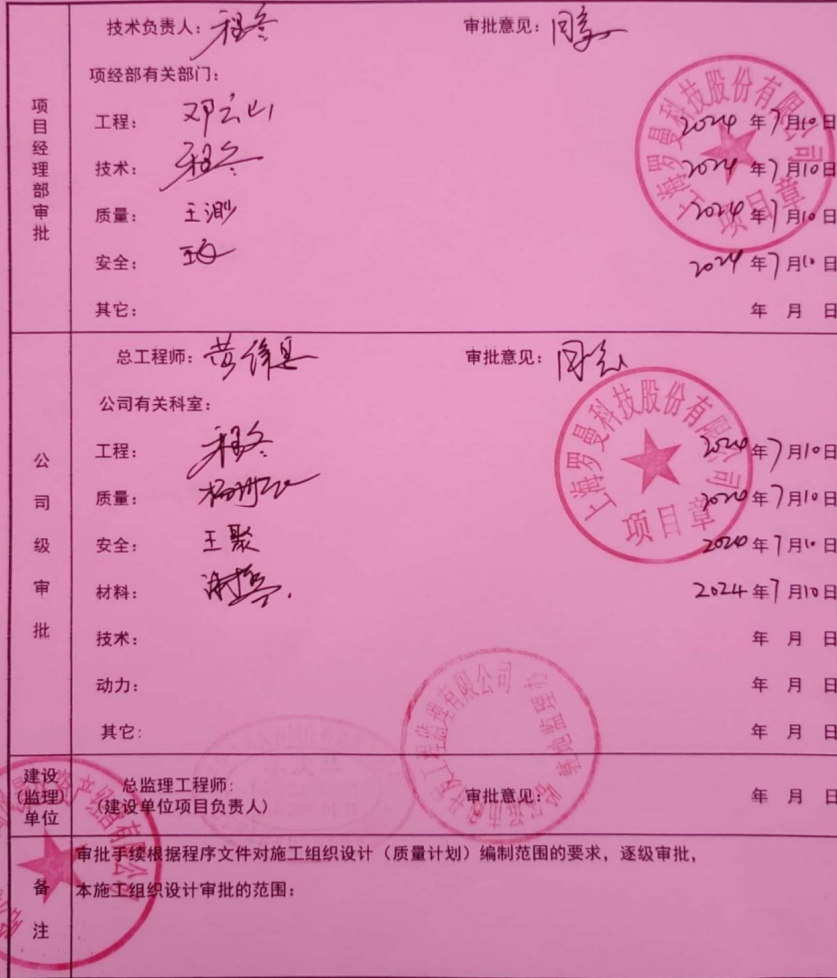 技术负责人：程冬 审批意见：同意
项经部有关部门：
项目经理部审批
工程：邓云山 2024年7月10日
技术：程冬 2024年7月10日
质量：王渺 2024年7月10日
安全： 2024年7月10日
其它： 年 月 日
上海罗曼科技股份有限公司
项目章
总工程师： 审批意见：同意
公司有关科室：
公司级审批
工程：程冬 2024年7月10日
质量： 2024年7月10日
安全：王聚 2024年7月10日
材料： 2024年7月10日
技术： 年 月 日
动力： 年 月 日
其它： 年 月 日
上海罗曼科技股份有限公司
项目章
工程监理有限公司
建设(监理)单位
总监理工程师：
(建设单位项目负责人) 审批意见： 年 月 日
备注
审批手续根据程序文件对施工组织设计（质量计划）编制范围的要求，逐级审批，
本施工组织设计审批的范围：